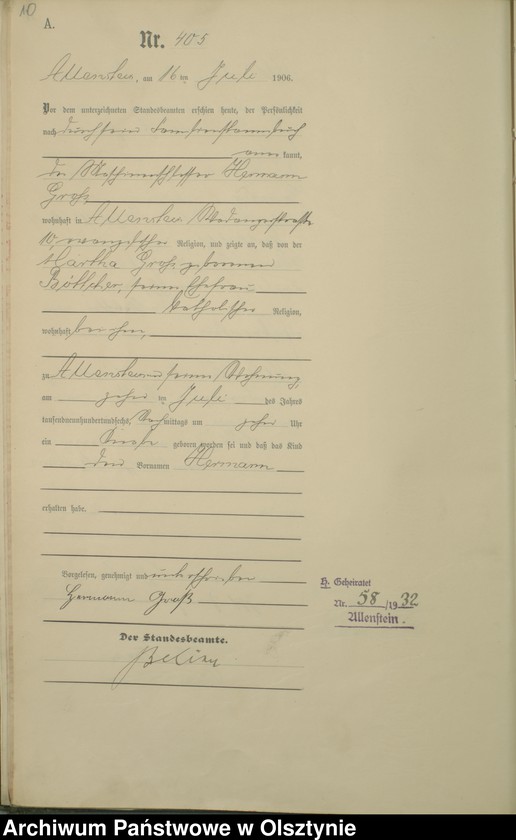 10
A.
Nr. 405
Allenstein, am 16 ten Juli 1906.
Vor dem unterzeichneten Standesbeamten erschien heute, der Persönlichkeit
nach durch sein Familienstammbuch
anerkannt,
der Maschinenschlosser Hermann
Groß
wohnhaft in Allenstein Wadangerstraße
10, evangelischer Religion, und zeigte an, daß von der
Martha Groß geborenen
Böttcher, seiner Ehefrau
katholischer Religion,
wohnhaft bei ihm,
zu Allenstein in seiner Wohnung,
am zehnten Juli des Jahres
tausendneunhundertundsechs, mittags um zehn Uhr
ein Knabe geboren worden sei und daß das Kind
den Vornamen Hermann
erhalten habe.
Vorgelesen, genehmigt und unterschrieben
Hermann Groß
Der Standesbeamte.
H. Geheiratet
Nr. 58/1932
Allenstein.
Archiwum Państwowe w Olsztynie